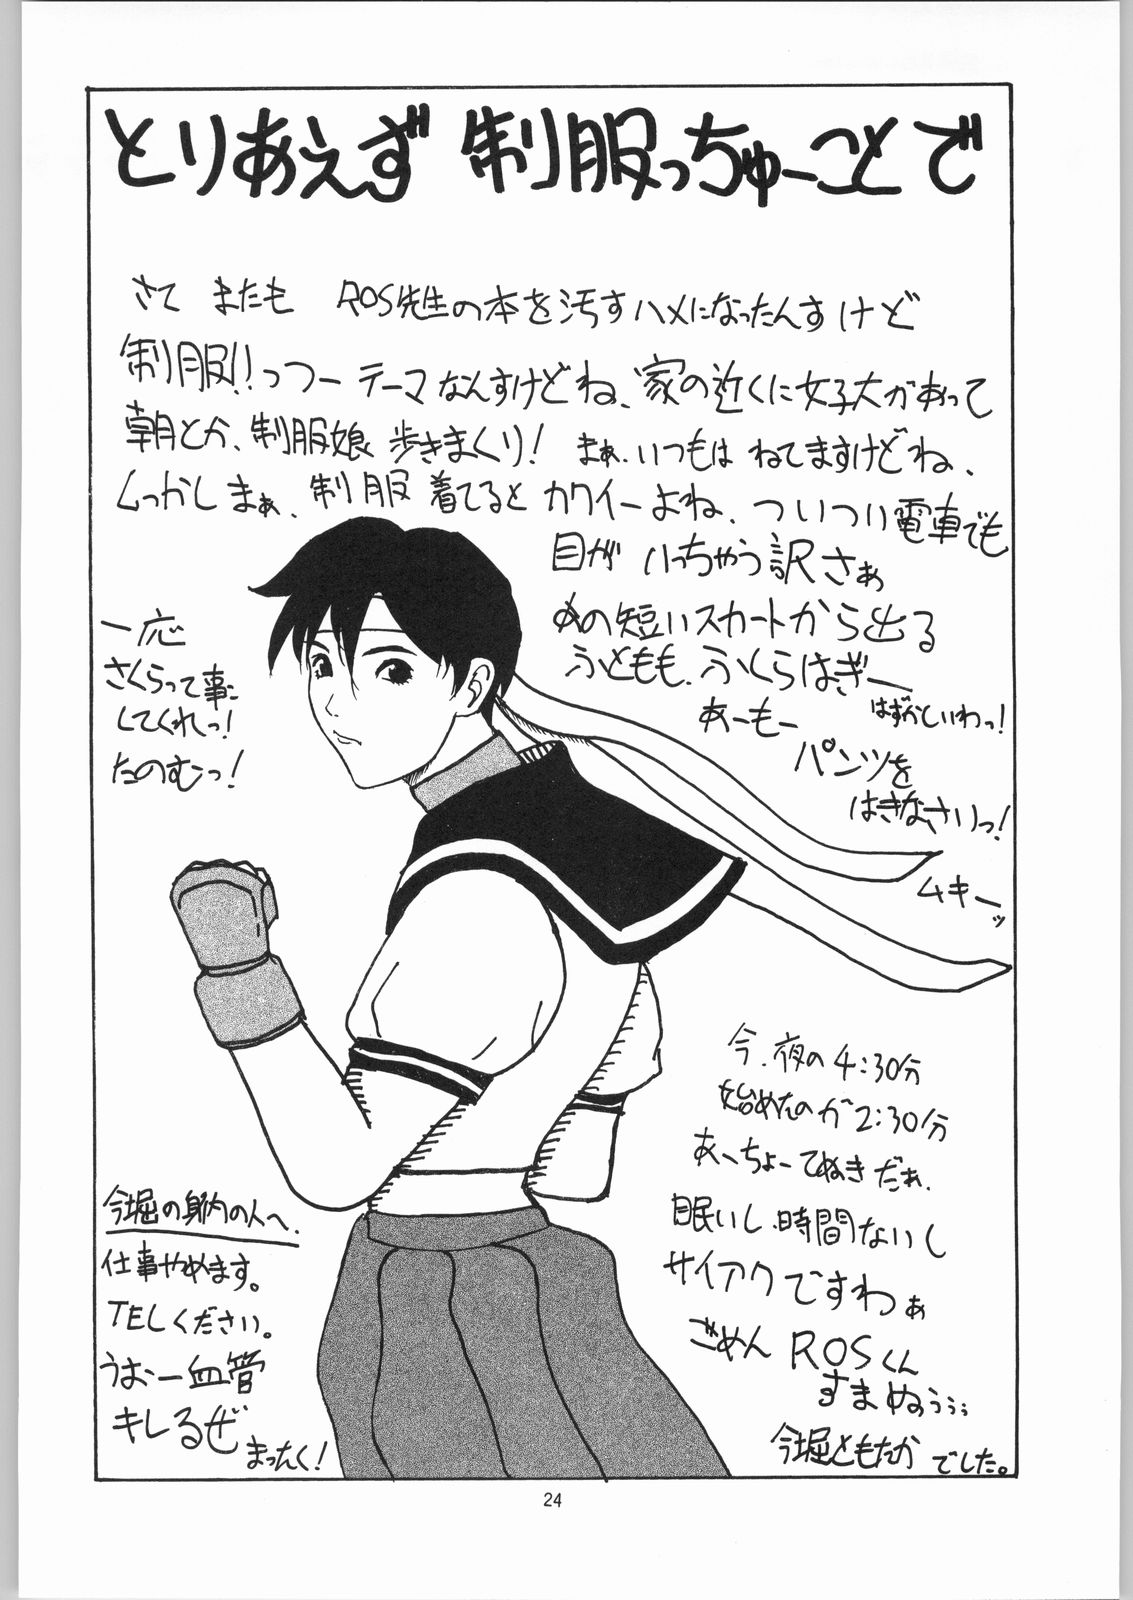 とりあえず 制服っちゅーことで
さて またも ROS先生の本を汚すハメになったんすけど
制服!!っつー テーマなんすけどね、家の近くに女子大があって
朝とか、制服娘 歩きまくり! まぁ、いつもは ねてますけどね、
しっかしまぁ、制服 着てると カワイーよね、ついつい電車でも
目が いっちゃう訳さぁ
あの短いスカートから出る
ふともも、ふくらはぎー
はずかしいわっ!
あーもー
パンツを
はきなさいっ!
ムキーッ
一応
さくらって事に
してくれっ!
たのむっ!
今、夜の4:30分
始めたのが2:30分
あーちょーてぬきだぁ、
眠いし、時間ないし
サイアクですわぁ
ごめん ROSくん
すまぬぅぅぅ
今堀ともたか でした。
今堀の身内の人へ、
仕事やめます。
TELください。
うおー血管
キレるぜ
まったく!
24